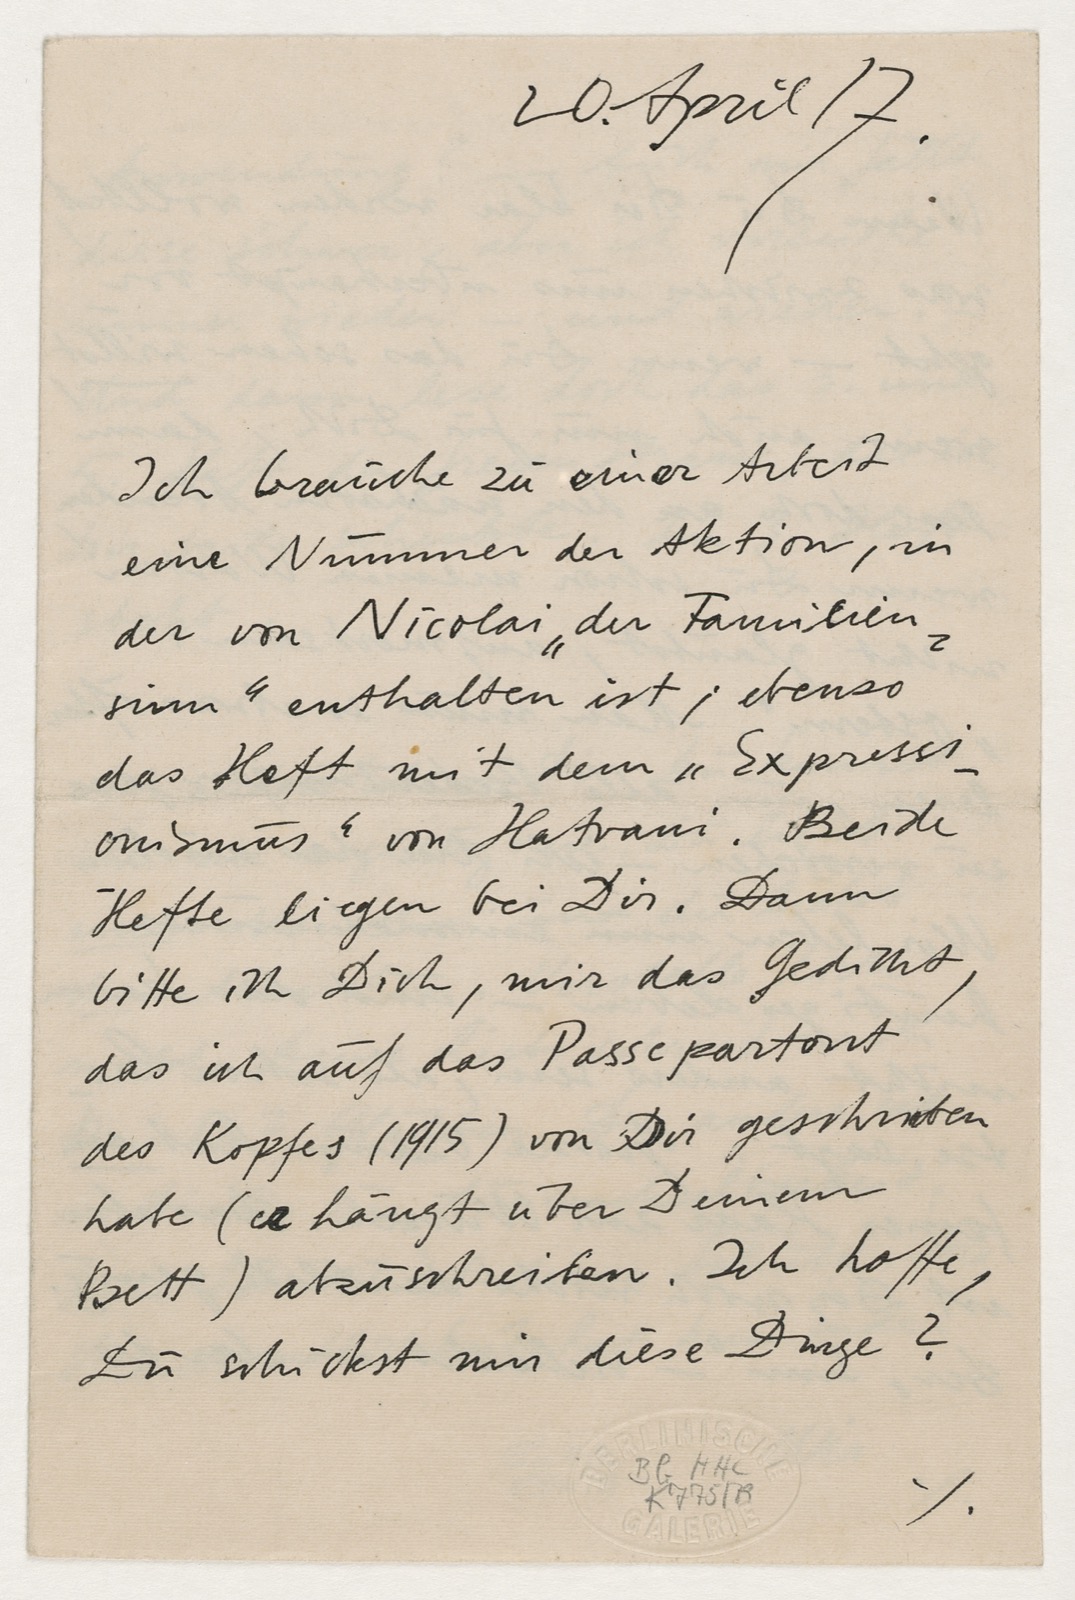 20. April 17.
Ich brauche zu einer Arbeit
eine Nummer der Aktion, in
der von Nicolai „der Familien-
sinn“ enthalten ist; ebenso
das Heft mit dem „Expressi-
onismus“ von Hatvani. Beide
Hefte liegen bei Dir. Dann
bitte ich Dich, mir das Gedicht,
das ich auf das Passepartout
des Kopfes (1915) von Dir geschrieben
habe (er hängt über Deinem
Bett) abzuschreiben. Ich hoffe,
Du schickst mir diese Dinge?
BERLINISCHE
BG HHC
K 775/79
GALERIE
./.